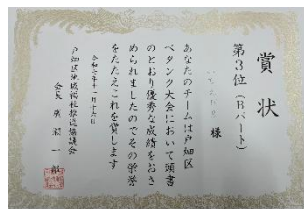 賞状
第3位（Bパート）
様
あなたのチームは戸畑区
ペタンク大会において頭書
のとおり優秀な成績をおさ
められましたのでその栄誉
をたたえこれを賞します
令和六年十一月十六日
戸畑区地域福祉推進協議会
会長 廣 一郎